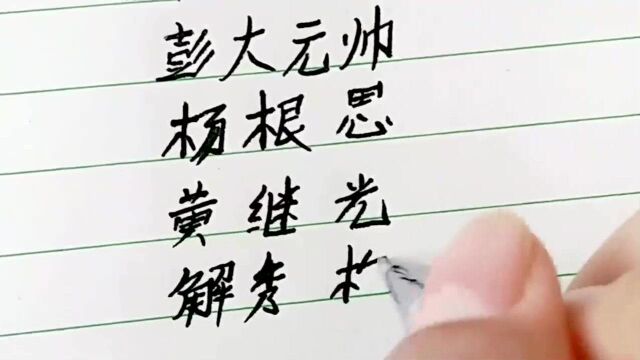 彭大元帅
杨根思
黄继光
解秀